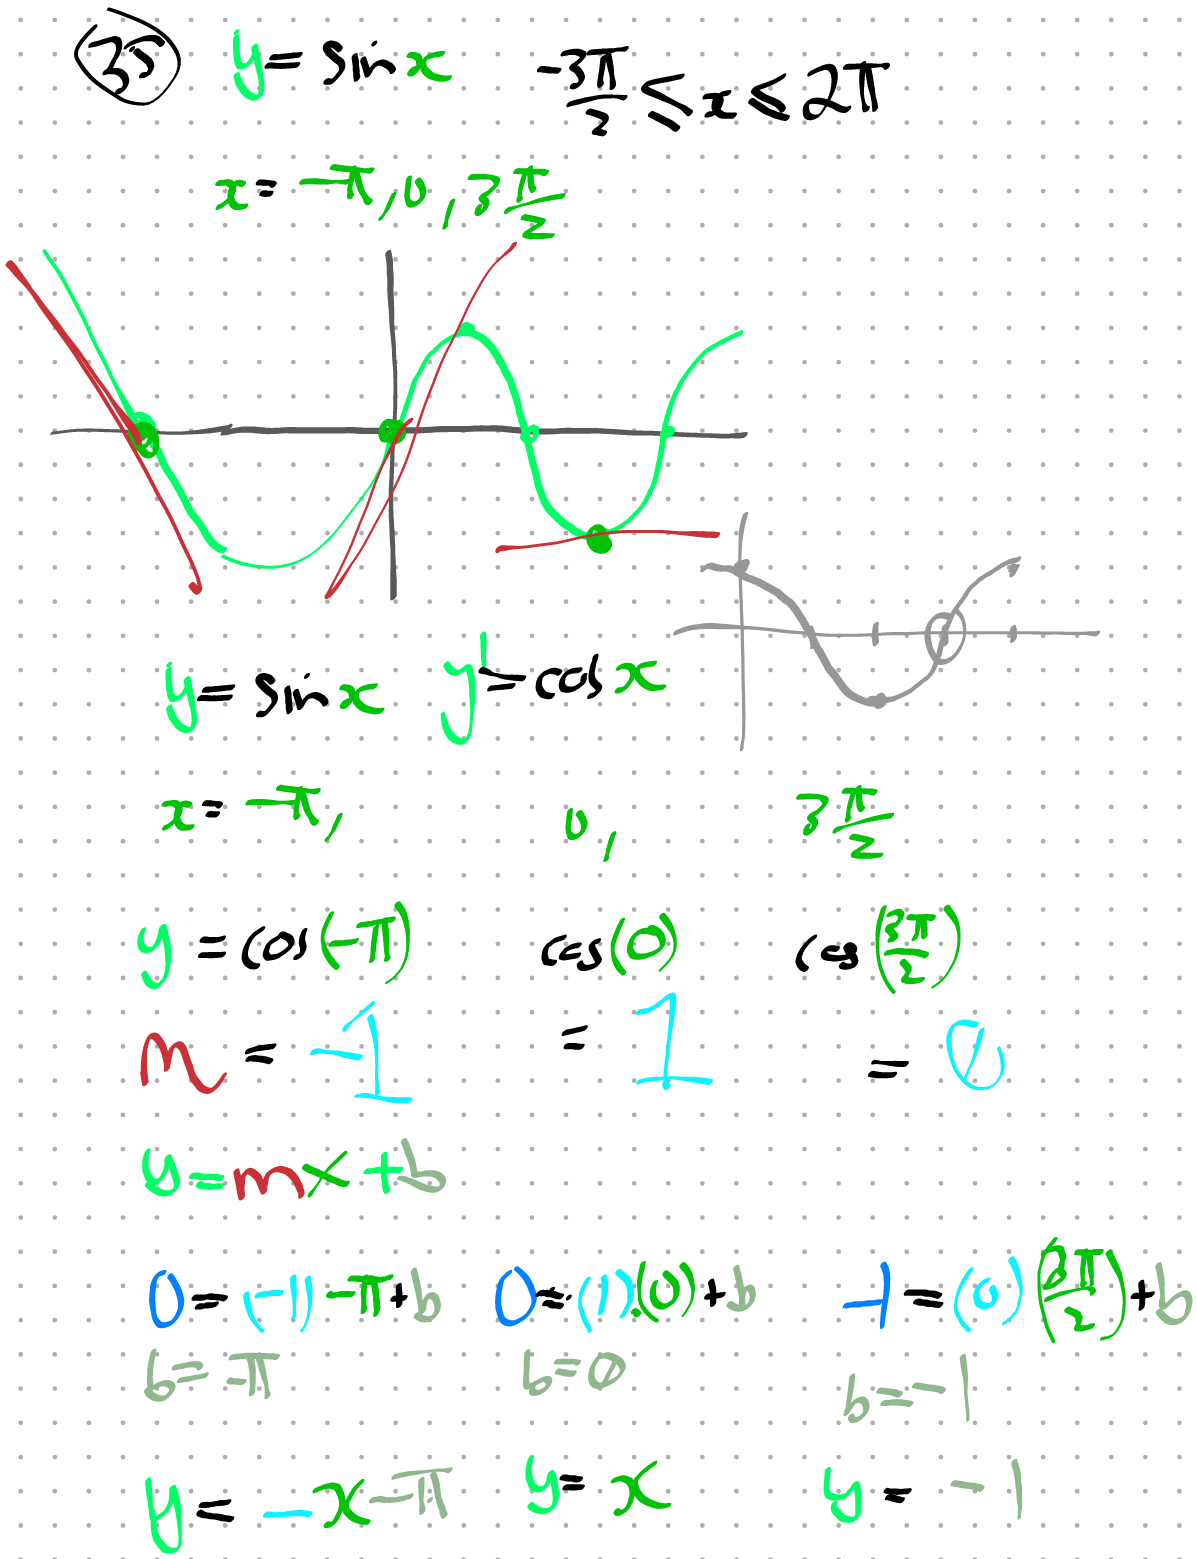 35 y = sin x -3π/2 ≤ x ≤ 2π
x = -π, 0, 3π/2
y = sin x y' = cos x
x = -π, 0, 3π/2
y = cos(-π) cos(0) cos(3π/2)
m = -1 = 1 = 0
y = mx + b
0 = (-1) -π + b 0 = (1)·(0) + b -1 = (0)(3π/2) + b
b = -π b = 0 b = -1
y = -x -π y = x y = -1